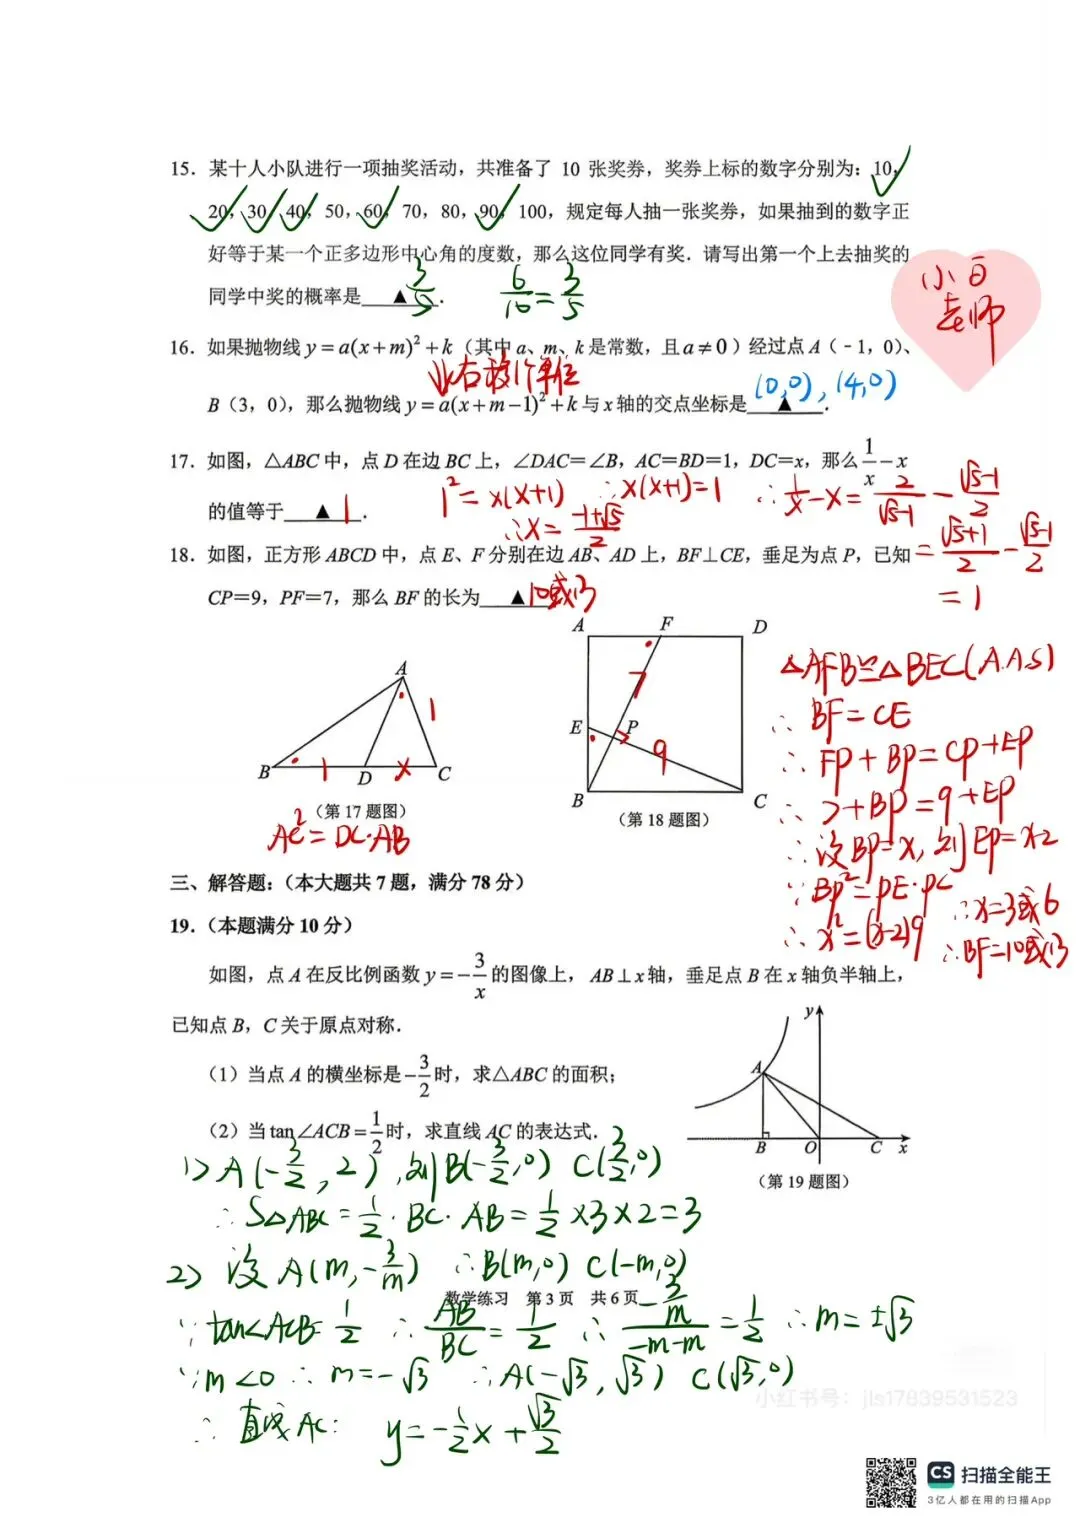 15. 某十人小队进行一项抽奖活动，共准备了 10 张奖券，奖券上标的数字分别为：10，
20，30，40，50，60，70，80，90，100，规定每人抽一张奖券，如果抽到的数字正
好等于某一个正多边形中心角的度数，那么这位同学有奖．请写出第一个上去抽奖的
同学中奖的概率是 ▲ ． 3/5 6/10=3/5
小白老师
16. 如果抛物线 y=a(x+m)²+k（其中 a、m、k 是常数，且 a≠0）经过点 A（-1，0）、
向右移1个单位 (0,0), (4,0)
B（3，0），那么抛物线 y=a(x+m-1)²+k 与 x 轴的交点坐标是 ▲ ．
17. 如图，△ABC 中，点 D 在边 BC 上，∠DAC=∠B，AC=BD=1，DC=x，那么 1/x-x
的值等于 ▲ 1 ．
1²=x(x+1) ∴x(x+1)=1 ∴1/x-x=2/(√5-1)-(√5-1)/2
∴x=(-1+√5)/2
=(√5+1)/2-(√5-1)/2
=1
18. 如图，正方形 ABCD 中，点 E、F 分别在边 AB、AD 上，BF⊥CE，垂足为点 P，已知
CP=9，PF=7，那么 BF 的长为 ▲ 10或13
A F D
7
E P 9
B C
（第 18 题图）
A
1
B 1 D x C
（第 17 题图）
AC²=DC·AB
△AFB≌△BEC(A.A.S)
∴BF=CE
∴FP+BP=CP+EP
∴7+BP=9+EP
∴设BP=x,则EP=x-2
∵BP²=PE·PC
∴x²=(x-2)9
∴x=3或6
∴BF=10或13
三、解答题：（本大题共 7 题，满分 78 分）
19.（本题满分 10 分）
如图，点 A 在反比例函数 y=-3/x 的图像上，AB⊥x 轴，垂足点 B 在 x 轴负半轴上，
已知点 B，C 关于原点对称．
（1）当点 A 的横坐标是-3/2时，求△ABC 的面积；
（2）当 tan∠ACB=1/2时，求直线 AC 的表达式．
y
A
B O C x
（第 19 题图）
1) A(-3/2,2),则B(-3/2,0) C(3/2,0)
∴S△ABC=1/2·BC·AB=1/2×3×2=3
2) 设A(m,-3/m) ∴B(m,0) C(-m,0)
数学练习 第 3 页 共 6 页
∵tan∠ACB=1/2 ∴AB/BC=1/2 ∴(-3/m)/(-m-m)=1/2 ∴m=±√3
∵m<0 ∴m=-√3 ∴A(-√3,√3) C(√3,0)
小红书号：jls17839531523
∴直线AC: y=-1/2x+√3/2
CS 扫描全能王
3亿人都在用的扫描App